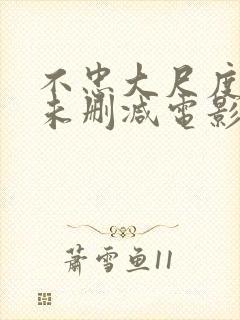 不忠大尺度
未删减电影
萧雪鱼11